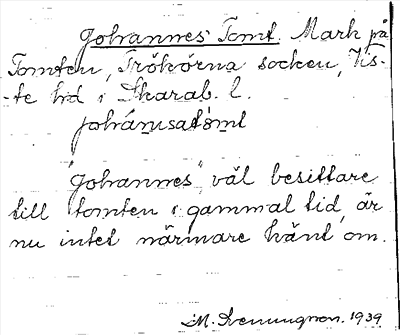 Johannes Tomt. Mark på
Tomten, Trökörna socken, Vis-
-te hd i Skarab. l.
johánusatømt
"Johannes", väl besittare
till tomten i gammal tid, är
nu intet närmare känt om.
M. 1939